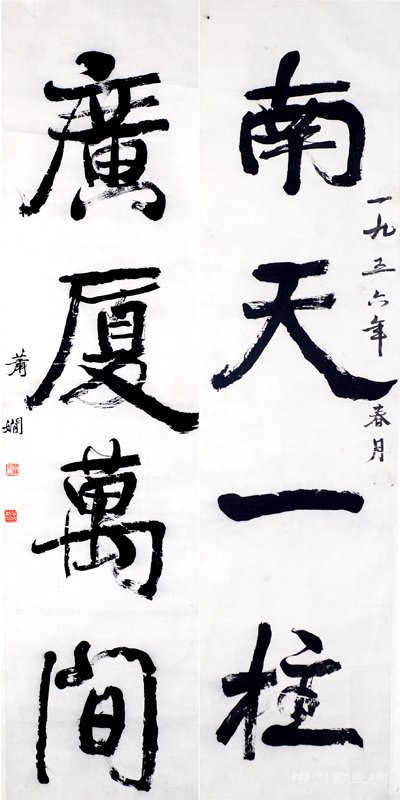 南天一柱
一九五六年春月
廣厦萬間
蕭嫻
中国书画网